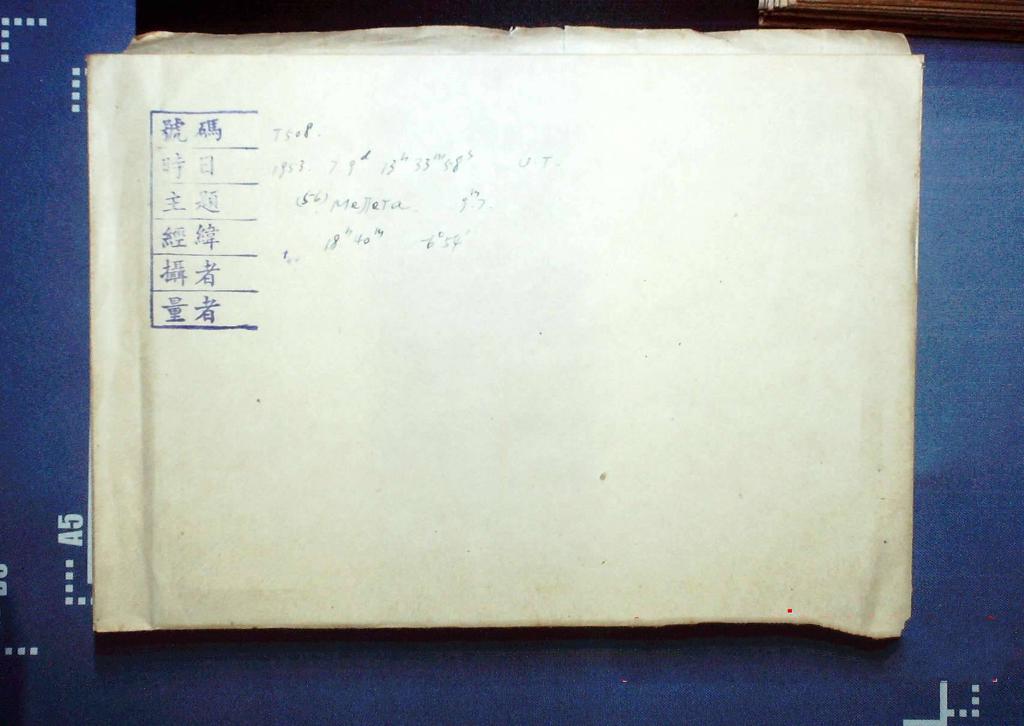 號碼 T508.
時日 1953. 7. 9ᵈ 13ʰ 33ᵐ 58ˢ U.T.
主題 (56) Мелета 9ᵐ.7.
經緯 18ʰ 40ᵐ -6° 54'
攝者
量者
A5